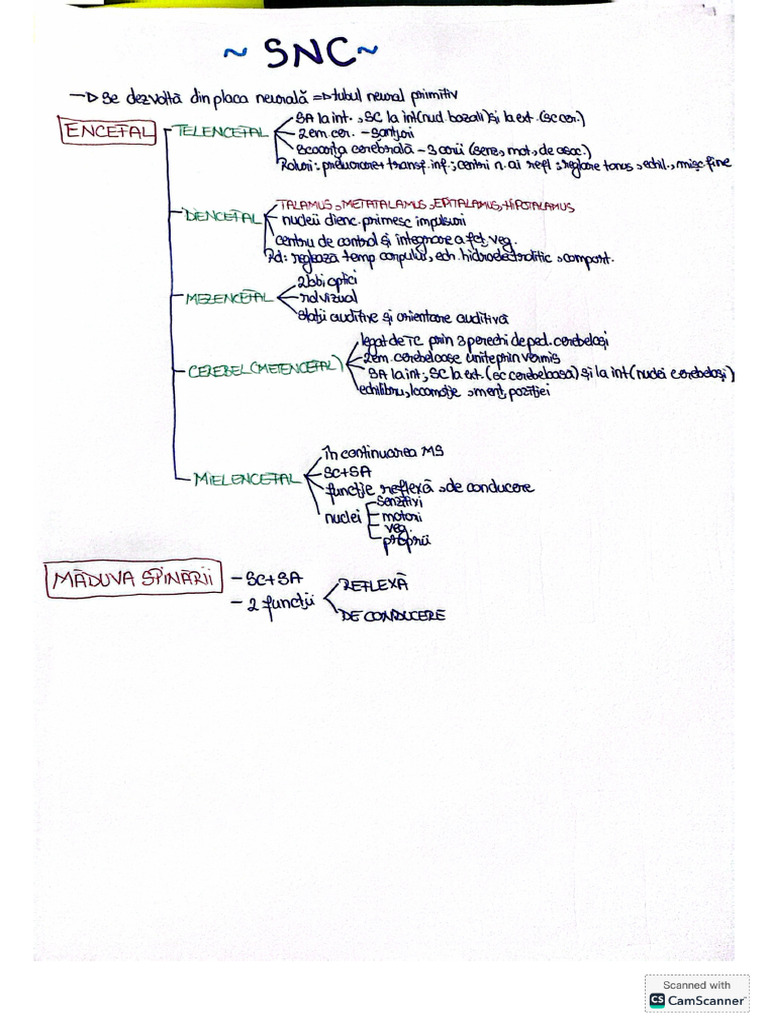 ~ SNC ~
→ Se dezvoltă din placa neurală => tubul neural primitiv
ENCEFAL
TELENCEFAL
SA la int., SC la int (nucl. bazali) și la ext. (sc cer.)
2 em. cer. - șanțuri
Scoarța cerebrală - 3 arii (sens, mot, de asoc.)
Roluri: prelucrare + transf. inf.; centrii n. ai refl; reglare tonus, echil., mișc fine
DIENCEFAL
TALAMUS, METATALAMUS, EPITALAMUS, HIPOTALAMUS
nucleii dienc. primesc impulsuri
centru de control și integrare a fct. veg.
Rol: reglează temp corpului, ech. hidroelectrolitic, comport.
MEZENCEFAL
2 lobi optici
rol vizual
stații auditive și orientare auditivă
CEREBEL (METENCEFAL)
legat de TC prin 3 perechi de ped. cerebeloși
2 em. cerebeloase unite prin vermis
SA la int; SC la ext. (sc cerebeloasă) și la int (nuclei cerebeloși)
echilibru, locomoție, menț. poziției
MIELENCEFAL
în continuarea MS
SC+SA
funcție reflexă, de conducere
nuclei
senzitivi
motorii
veg.
proprii
MĂDUVA SPINĂRII
- SC+SA
- 2 funcții
REFLEXĂ
DE CONDUCERE
Scanned with
CS CamScanner